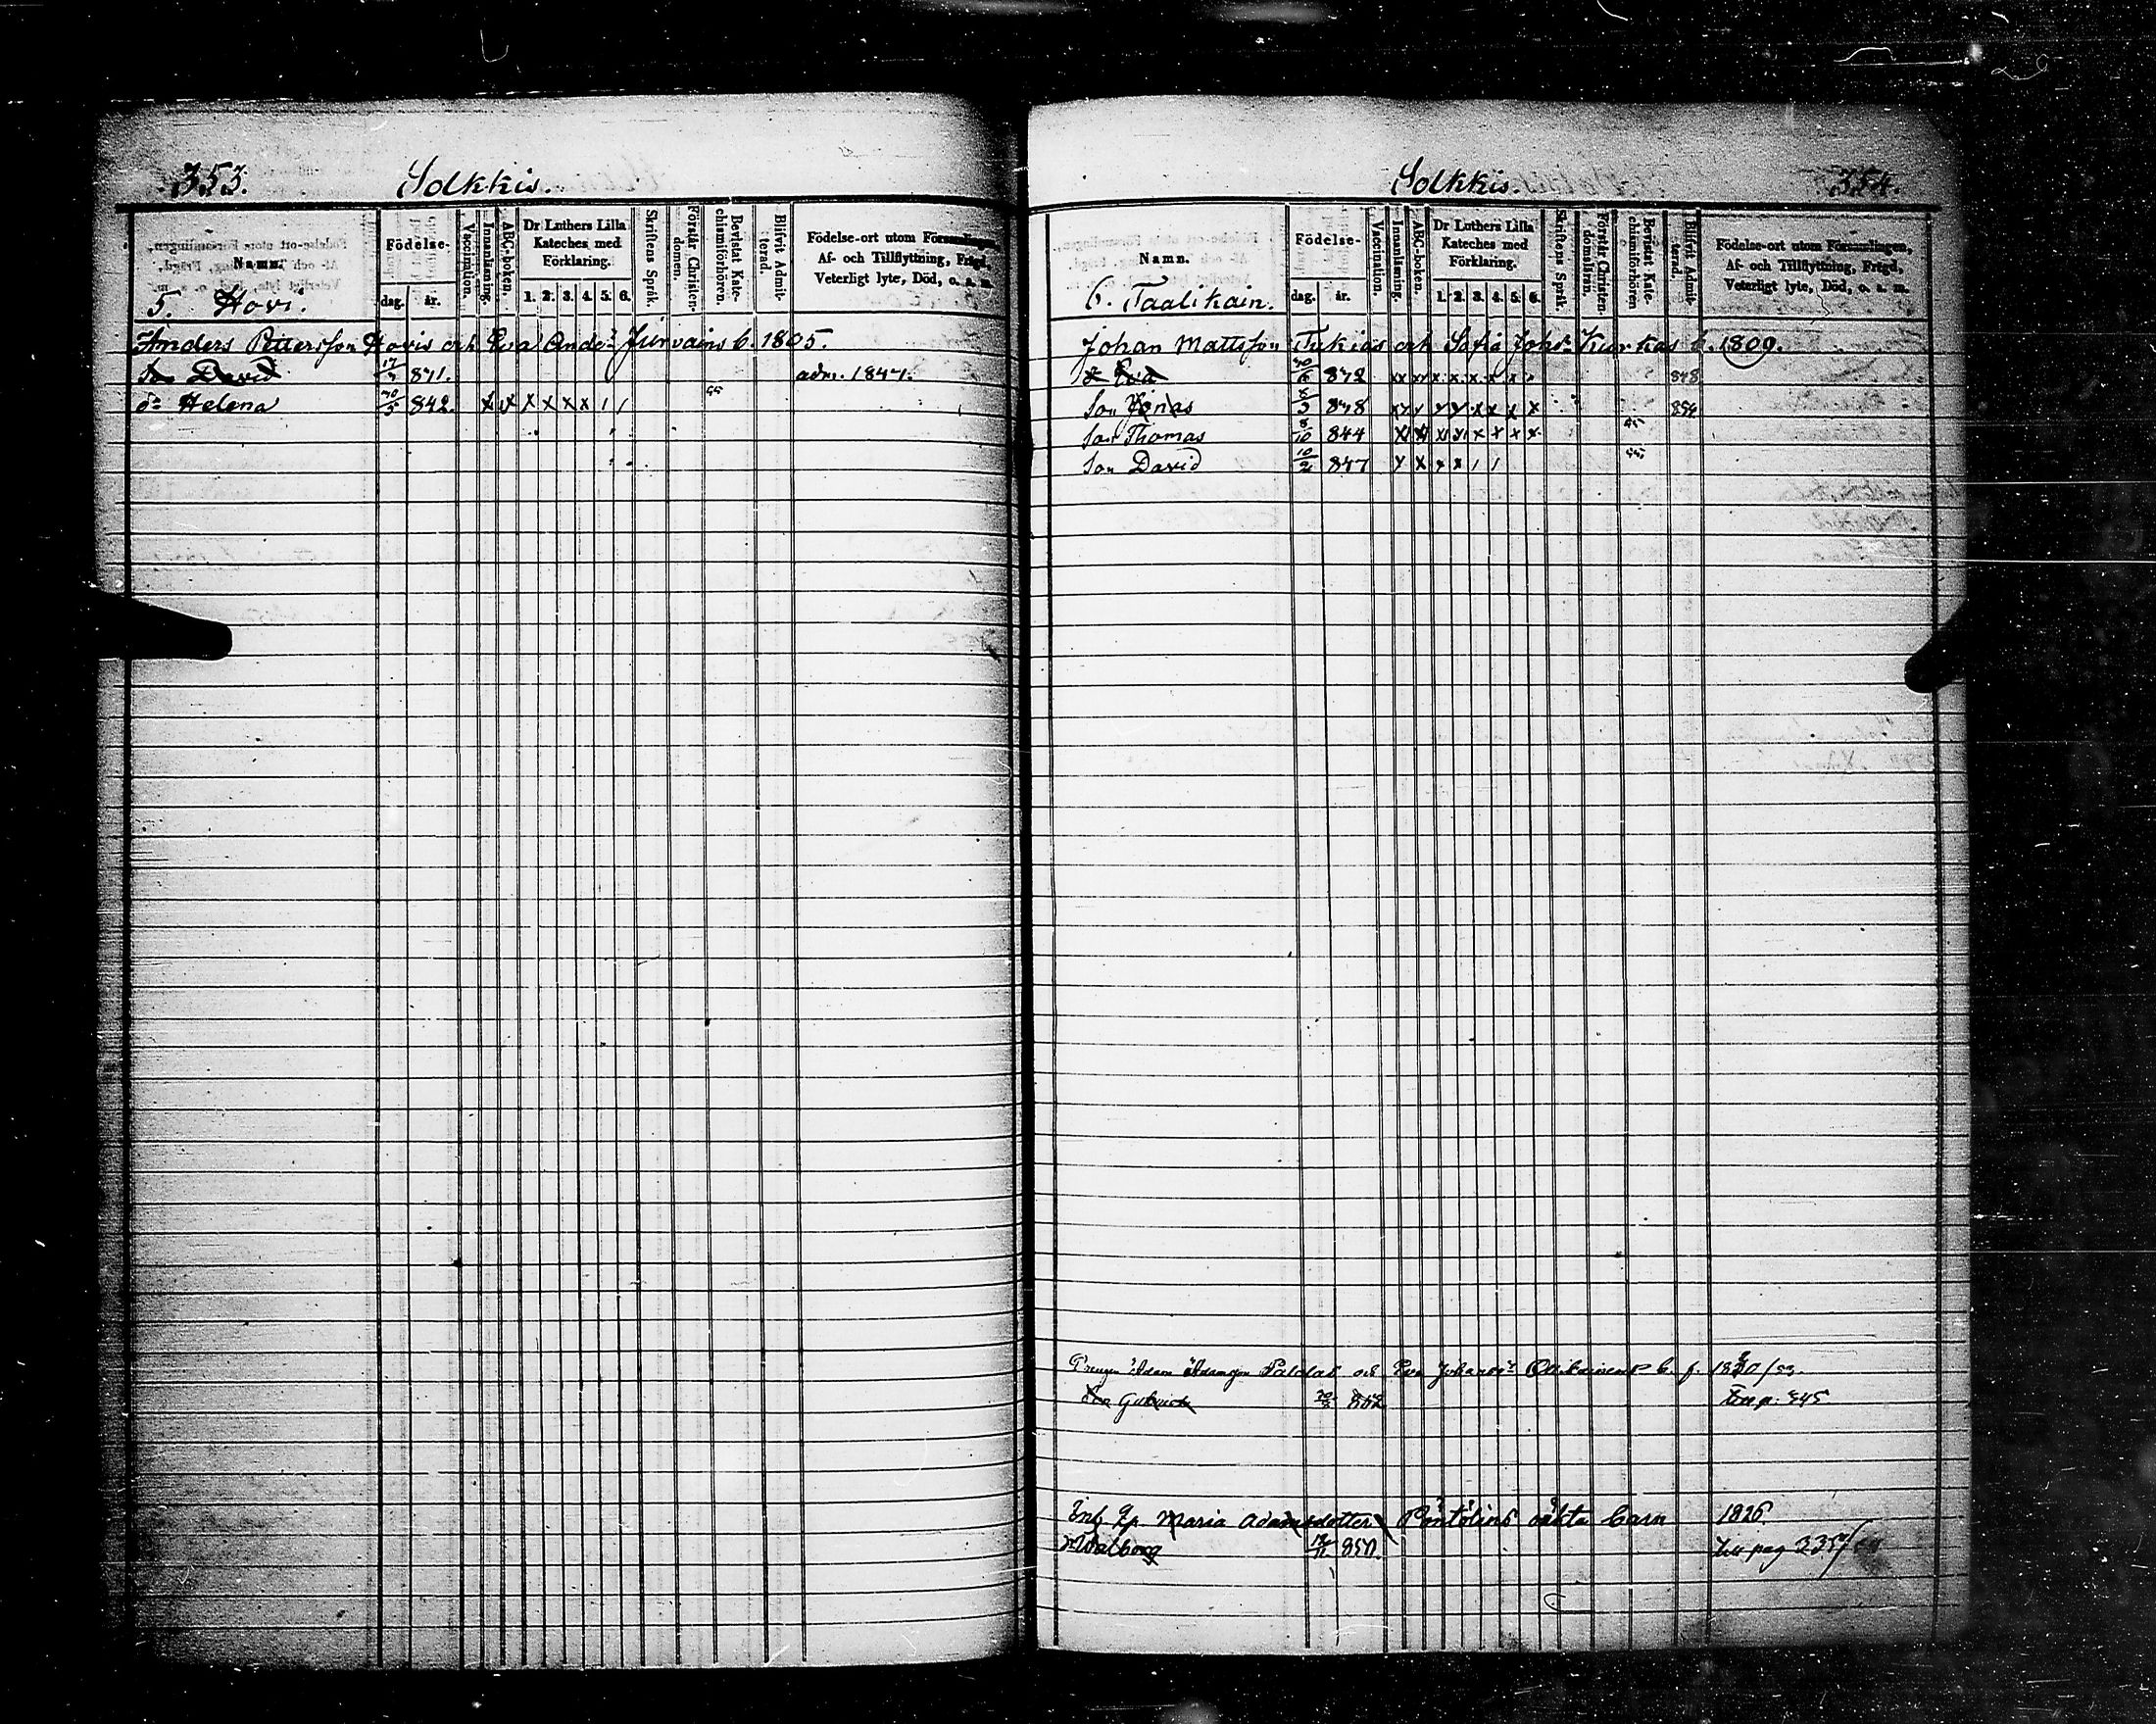 353.
Solkkis.
Namn.
Födelse-
dag. år.
Vaccination.
Innanläsning.
ABC-boken.
Dr Luthers Lilla Kateches med Förklaring.
1. 2. 3. 4. 5. 6.
Skriftens Språk.
Förstår Christendomen.
Bevistat Katechismiförhören.
Blifvit Admitterad.
Födelse-ort utom Församlingen, Af- och Tillflyttning, Frägd, Veterligt lyte, Död, o. s. m.
5. Hovi.
Anders Pettersson Hovis och Eva And:dr b. 1805.
Son David 871. adm. 1847.
dr Helena 30/5 842. x x x x x x / /
Solkkis.
354.
Namn.
Födelse-
dag. år.
Vaccination.
Innanläsning.
ABC-boken.
Dr Luthers Lilla Kateches med Förklaring.
1. 2. 3. 4. 5. 6.
Skriftens Språk.
Förstår Christendomsläran.
Bevistat Katechismiförhören
Blifvit Admitterad.
Födelse-ort utom Församlingen, Af- och Tillflyttning, Frägd, Veterligt lyte, Död, o. s. m.
6. Taalikain.
Johan Mattsson Tukias och Sofia Johs dr Kurkas b. 1809.
dr Eva 872 848
Son Jonas 878 854
Son Thomas 8/10 844
Son David 10/2 847
Adam Adamsson och Eva b. f.
852 p: 345
Maria Adamsdotter oäkta barn 1826.
Walborg 850. till pag 235